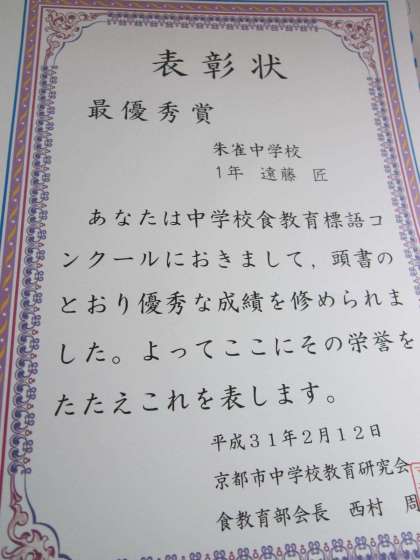 表彰状
最優秀賞
朱雀中学校
1年 遠藤 匠
あなたは中学校食教育標語コ
ンクールにおきまして，頭書の
とおり優秀な成績を修められま
した。よってここにその栄誉を
たたえこれを表します。
平成31年2月12日
京都市中学校教育研究会
食教育部会長 西村 周